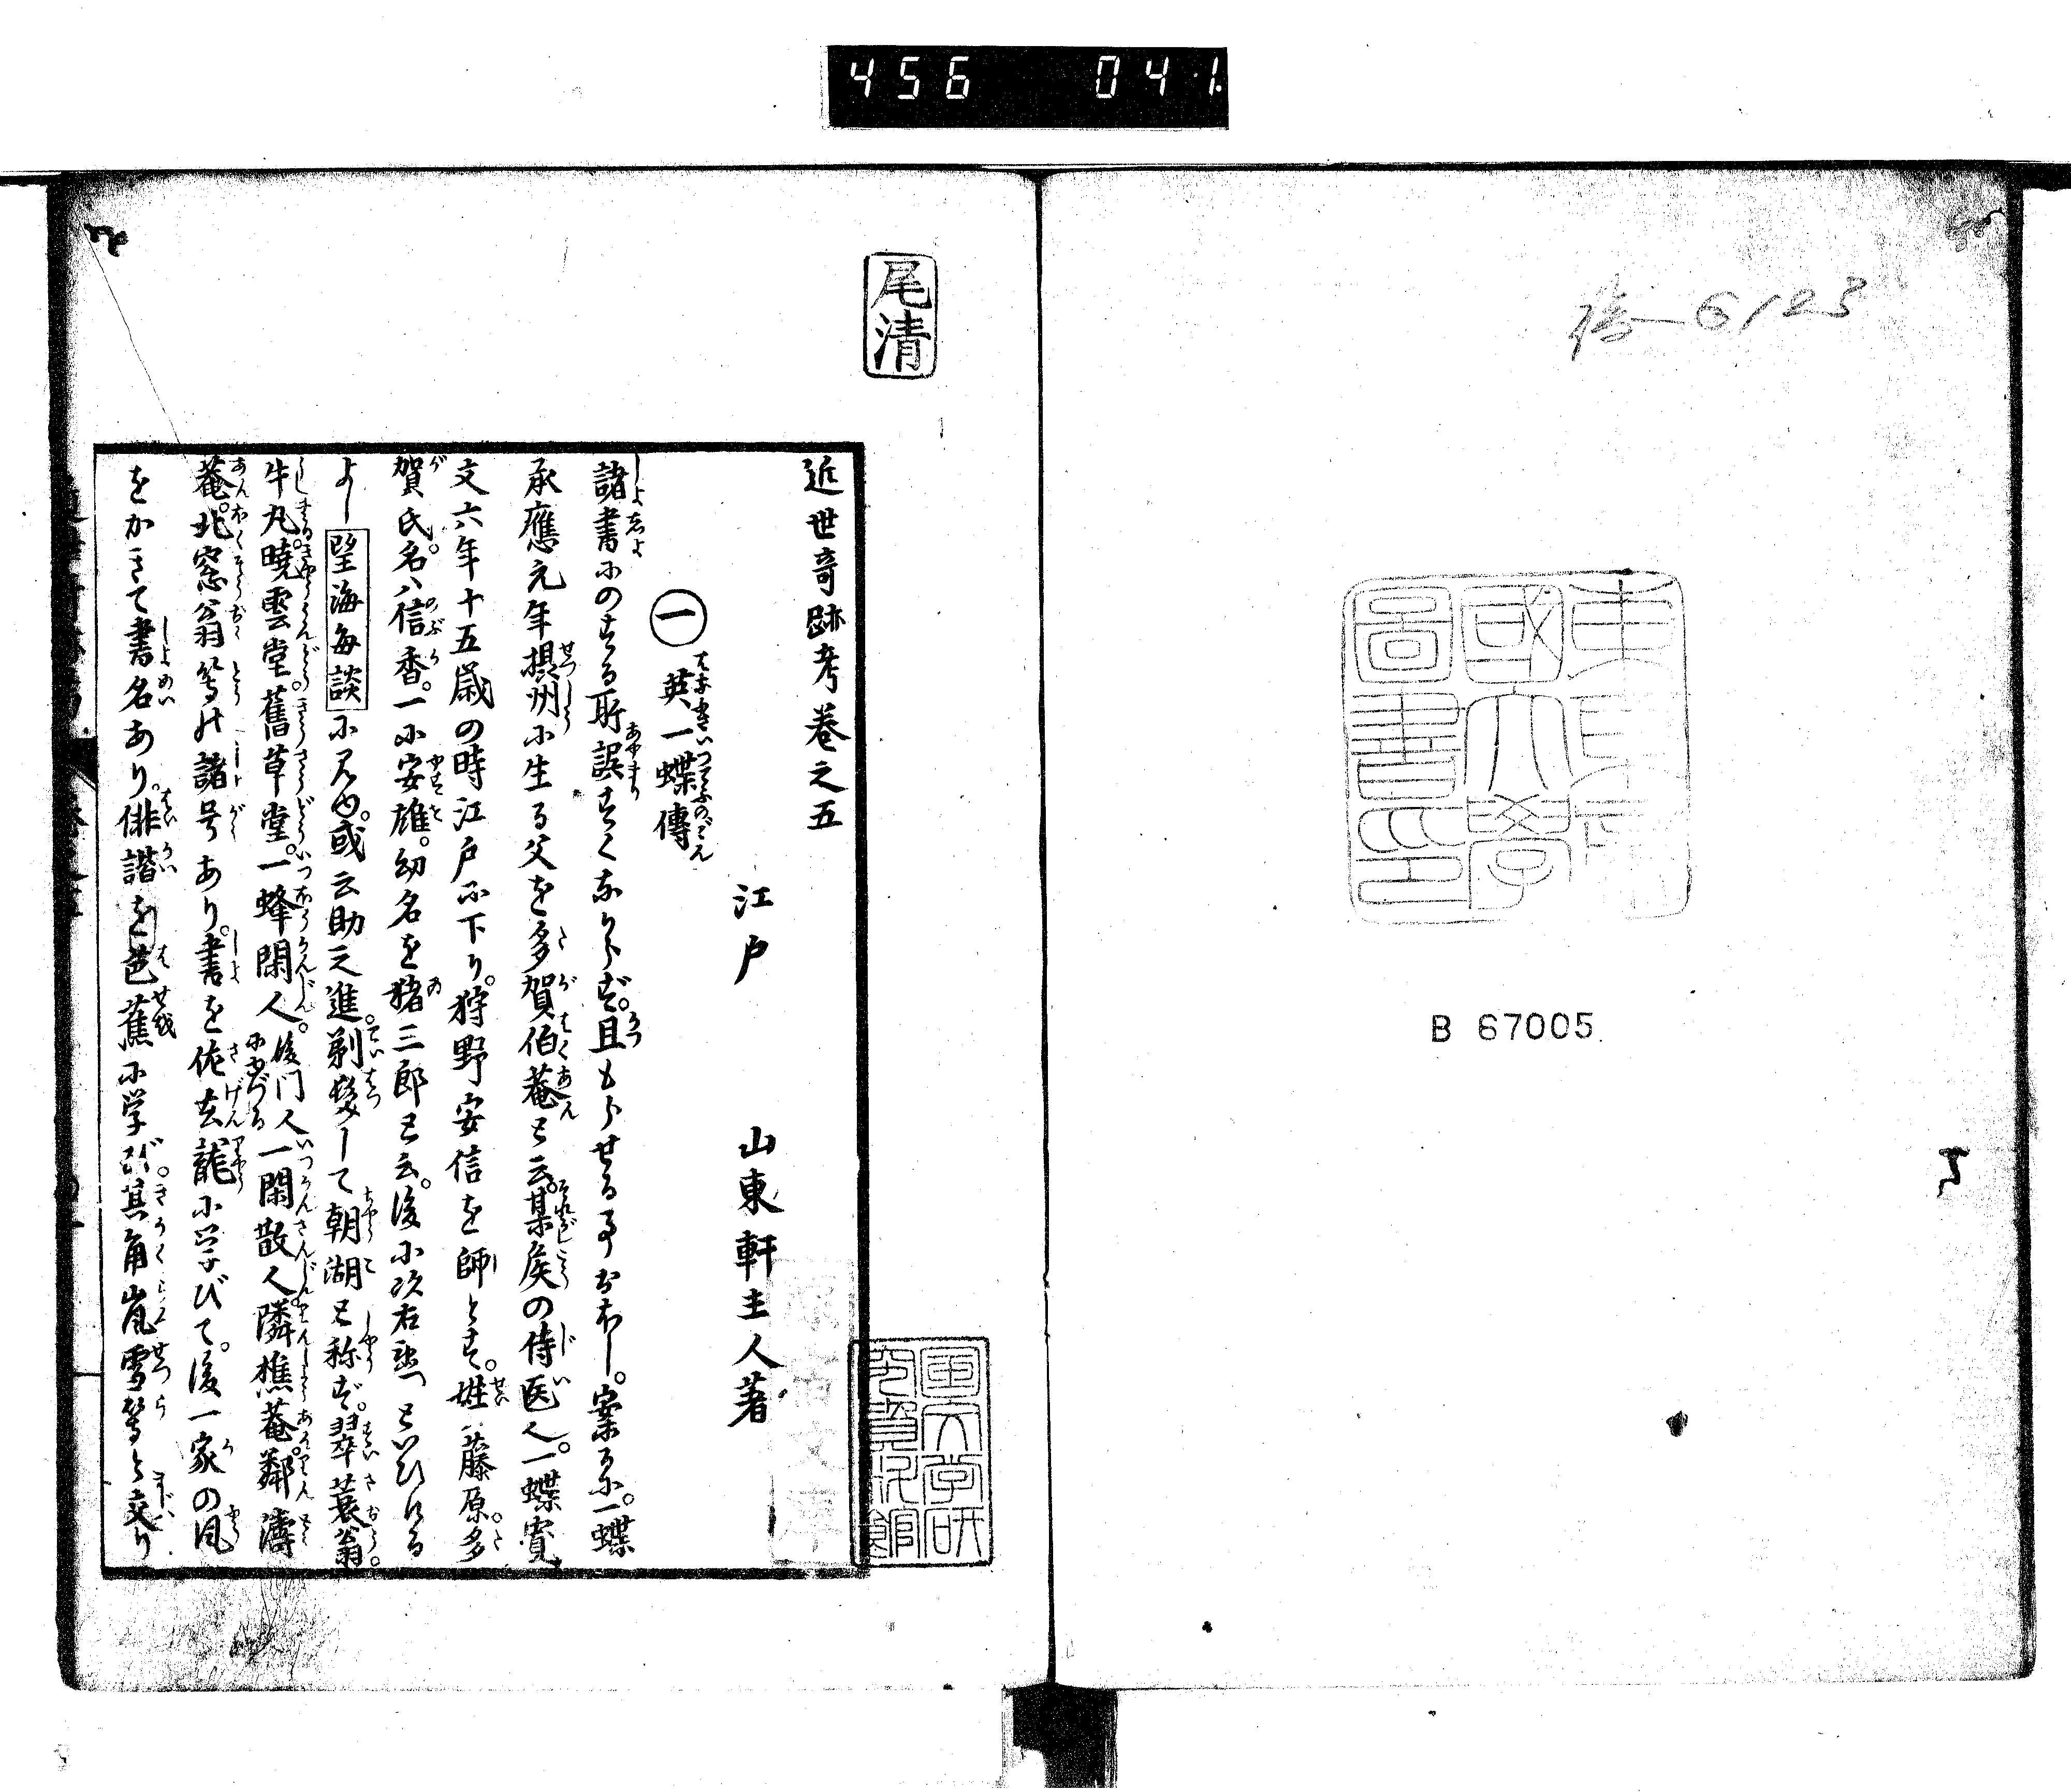 456 041.
6123
東京
國大學
圖書印
B 67005.
尾清
近世竒跡考巻之五
江戸 山東軒主人著
國文学研
究資料館
一 英一蝶傳
諸書にのする所誤すくなからず。且もらせる事おほし。案るに。一蝶
承應元年摂州に生る父を多賀伯菴と云。某侯の侍医人。一蝶寛
文六年十五歳の時江戸に下り。狩野安信を師とす。姓ハ藤原。多
賀氏。名ハ信香。一に安雄。幼名を猪三郎と云。後に次右衛門といひける
よし 望海毎談 に見ゆ。或云助之進。剃髪して朝湖と称ず。翠蓑翁。
牛丸。暁雲堂。舊草堂。一蜂閑人。後門人一閑散人にゆづる 隣樵菴。鄰濤
菴。北窓翁等の諸号あり。書を佐玄龍に学びて。後一家の風
をかきて書名あり。俳諧を芭蕉に学び。其角嵐雪等と交り